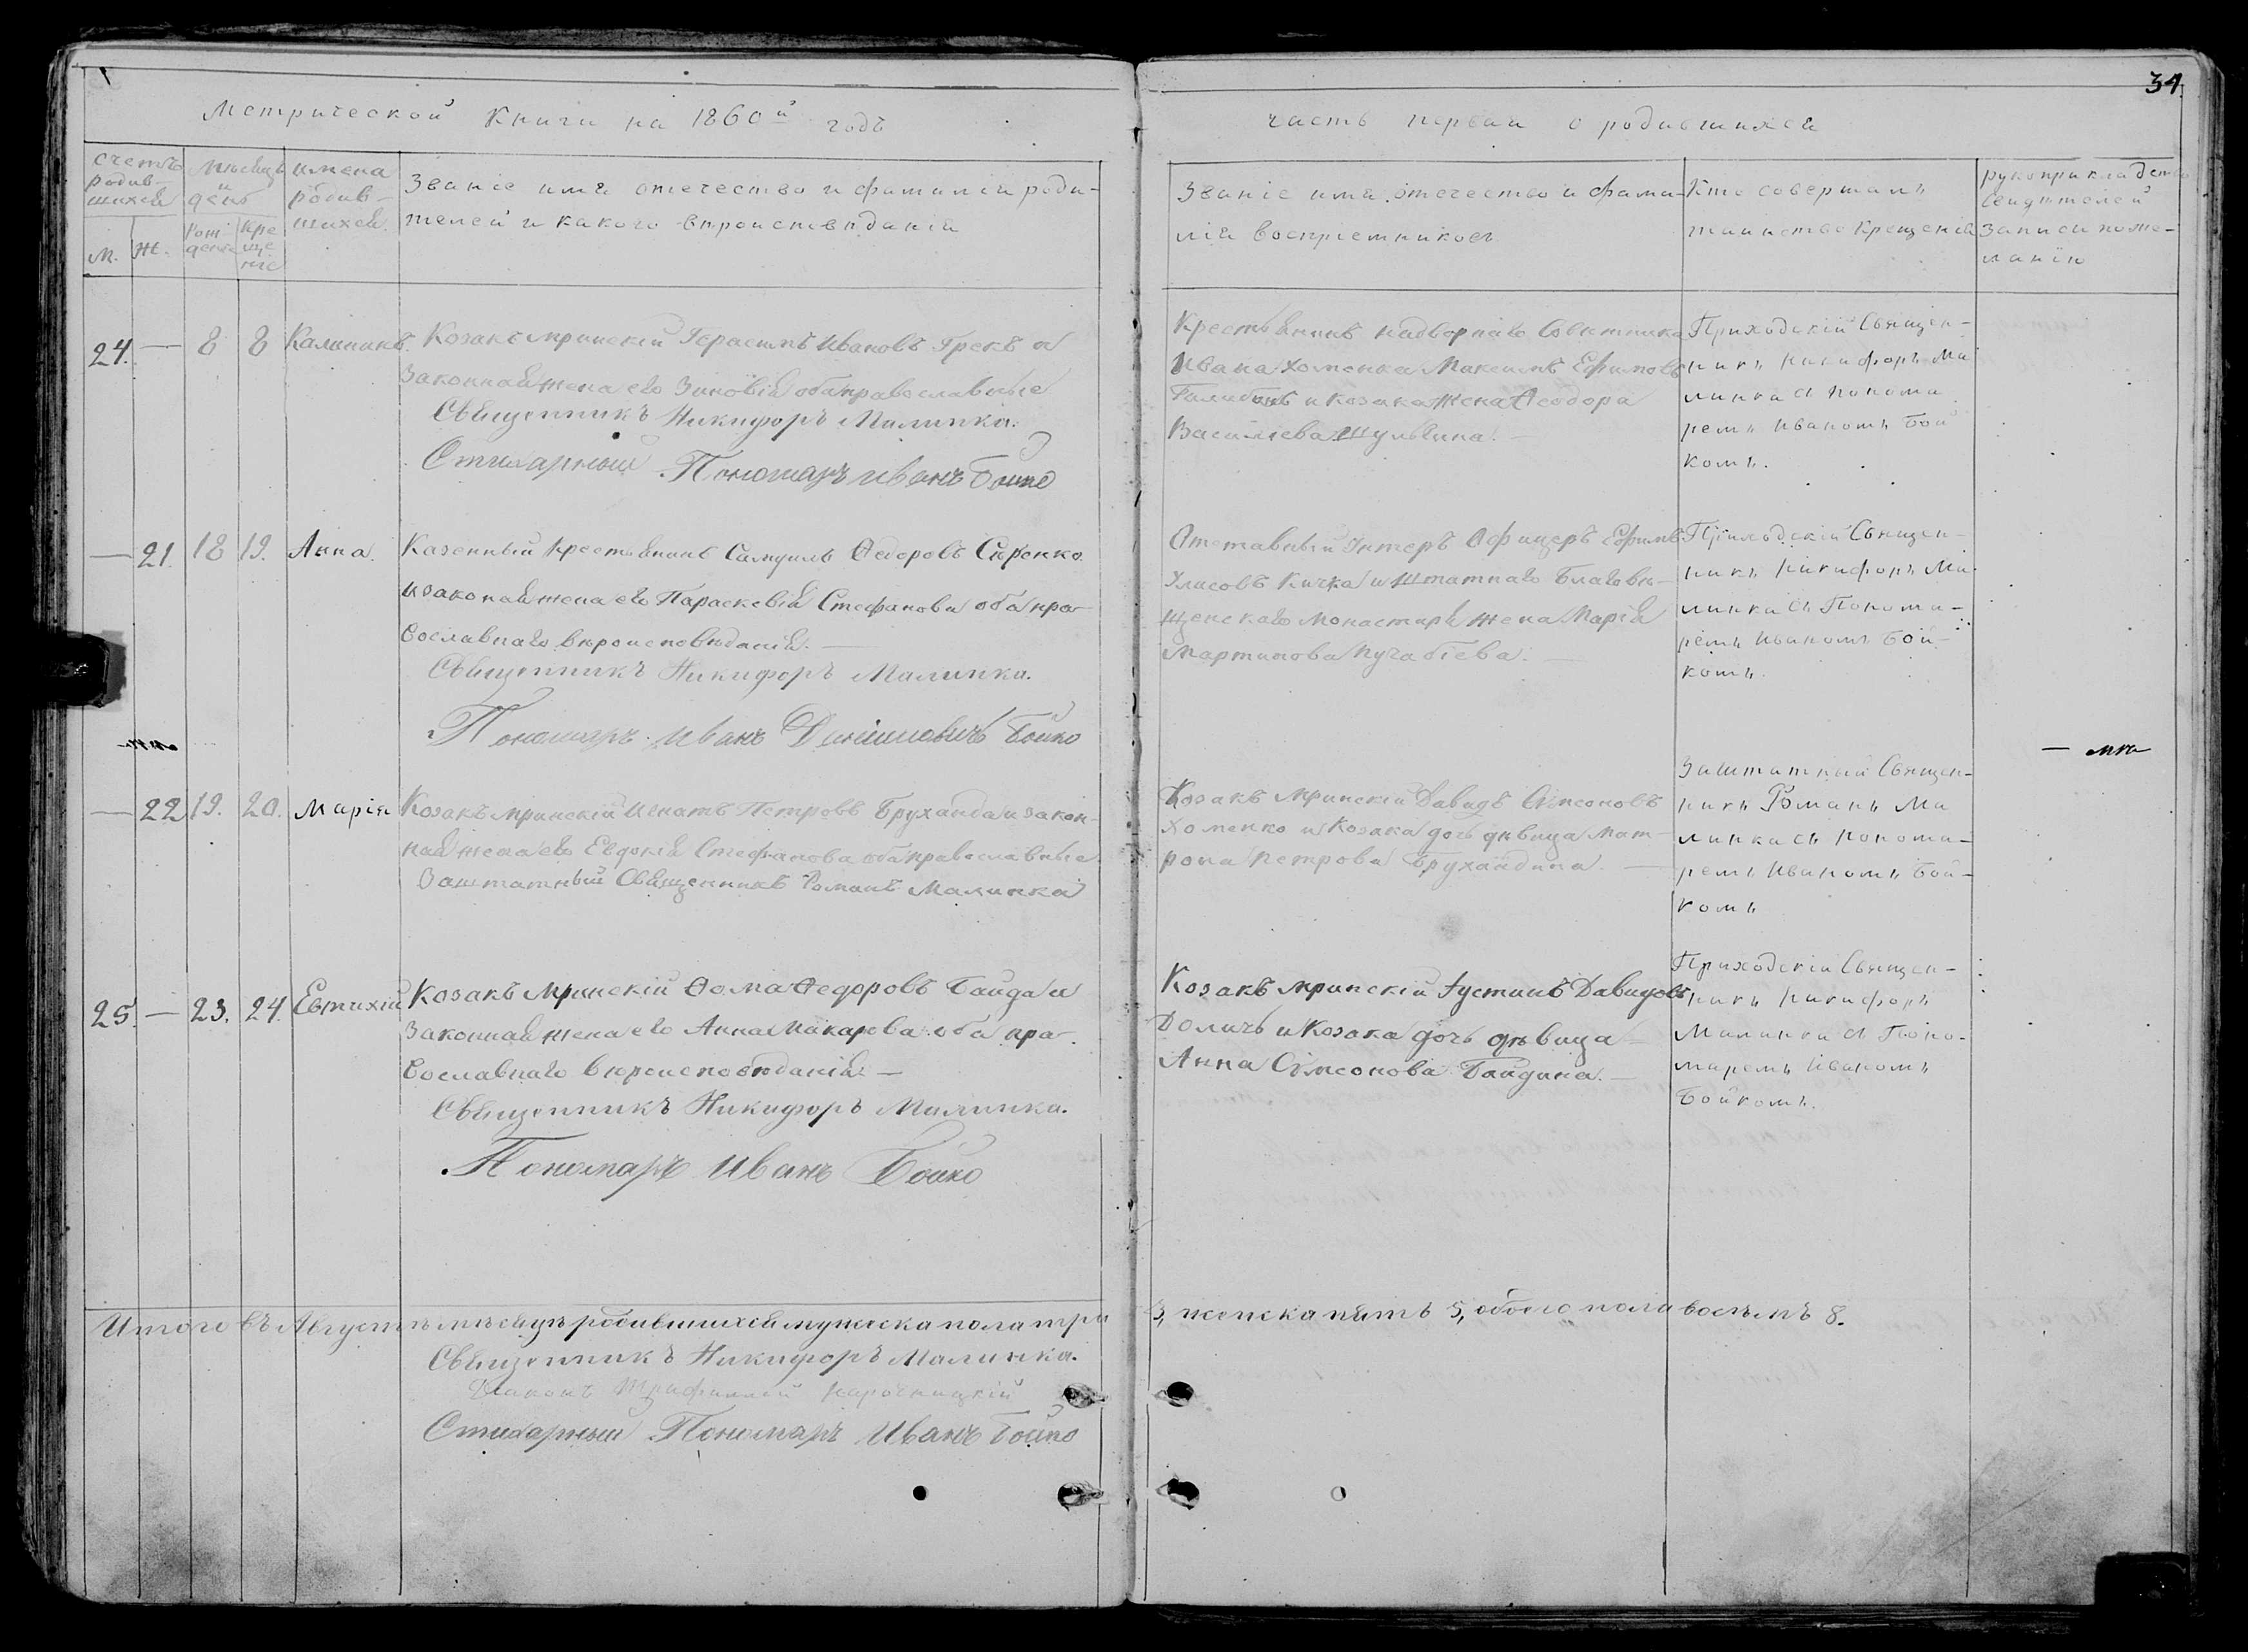 34
Метрической Книги на 1860й годъ
часть первая о родившихся
счетъ родив-шихся
М.
Ж.
мѣсяцъ и день
Рож денія
Кре ще нія
имена родив-шихся.
Званіе имя отечество и фамилія роди-
телей и какого вѣроисповѣданія
Званіе имя отечество и фами-
лія воспріемниковъ
Кто совершалъ
таинство Крещенія
рукоприкладство
свидѣтелей
записи по же-
ланію
24. — 8 8 Калиникъ.
Козакъ мринскій Герасимъ Ивановъ Грекъ и
Законная жена его Зиновія оба православные
Священникъ Никифоръ Малинка.
Стихарный Пономарь Иванъ Бойко
Крестьянинъ надворнаго Совѣтника
Ивана Хоменка Максимъ Ефимовъ
и козака жена Ѳеодора
Васильева Шульгина. —
Приходскій Священ-
никъ Никифоръ Ма
линка съ понома
ремъ Иваномъ Бой
комъ.
— 21. 18 19. Анна.
Казенный крестьянинъ Самуилъ Ѳедоровъ Сѣренко
и законная жена его Параскевія Стефанова оба пра-
вославнаго вѣроисповѣданія. —
Священникъ Никифоръ Малинка.
Пономарь Иванъ Бойко
Отставный Унтеръ Офицеръ Ефимъ
Улисовъ Кичка и штатнаго Благовѣ-
щенскаго монастыря жена Марія
Мартинова
Приходскій Священ-
никъ Никифоръ Ма
линка съ Понома-
ремъ Иваномъ Бой-
комъ.
— 22 19. 20. Марія
Козакъ мринскій Игнатъ Петровъ Бруханда и закон-
ная жена его Евдокія Стефанова оба православные
Заштатный Священникъ Романъ Малинка
Козакъ мринскій Давидъ Сѵмеоновъ
Хоменко и Козака дочь дѣвица Мат-
рона Петрова Брухандина. —
Заштатный Священ-
никъ Романъ Ма
линка съ понома-
ремъ Иваномъ Бой-
комъ
25. — 23. 24. Евтихій
Козакъ мринскій Ѳома Ѳедоровъ Байда и
Законная жена его Анна Макарова оба пра-
вославнаго вѣроисповѣданія. —
Священникъ Никифоръ Малинка.
Пономарь Иванъ Бойко
Козакъ мринскій Іустинъ Давидовъ
Доличъ и Козака дочь дѣвица
Анна Сѵмеонова Байдина. —
Приходскій Священ-
никъ Никифоръ
Малинка съ Поно-
маремъ Иваномъ
Бойкомъ.
Итого въ Августѣ мѣсяцѣ родившихся мужеска пола три 3, женска пять 5, обоего пола восемь 8.
Священникъ Никифоръ Малинка.
Діаконъ
Стихарный Пономарь Иванъ Бойко